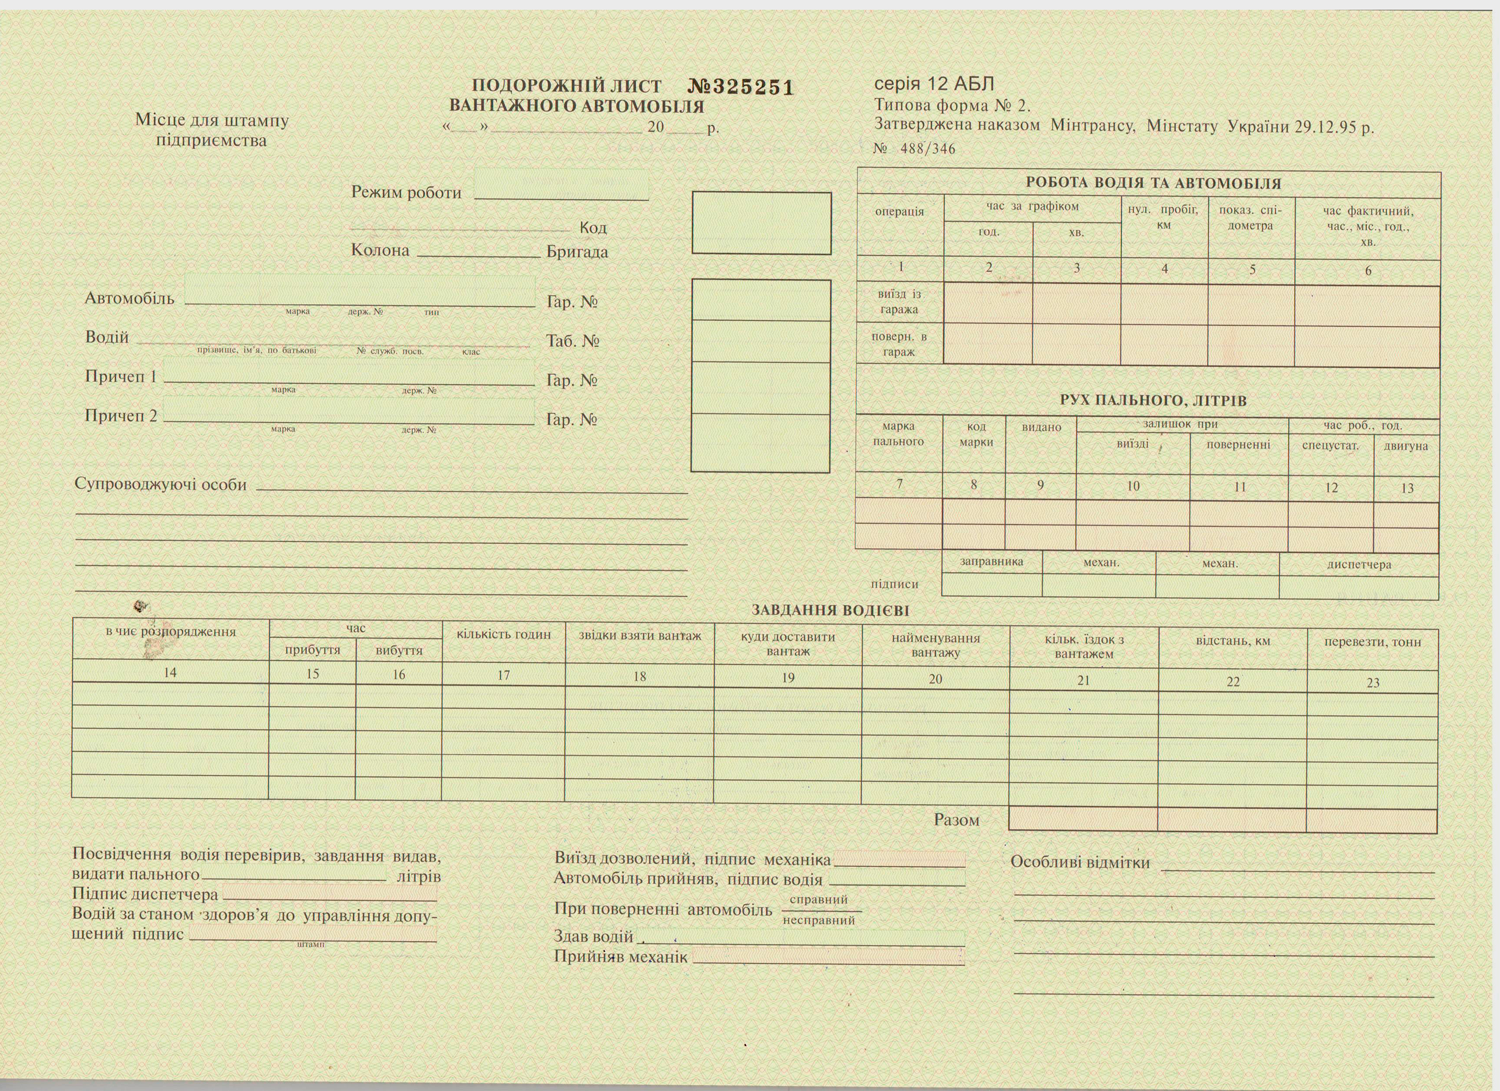 ПОДОРОЖНІЙ ЛИСТ №325251
ВАНТАЖНОГО АВТОМОБІЛЯ
«___»____________ 20____р.
серія 12 АБЛ
Типова форма № 2.
Затверджена наказом Мінтрансу, Мінстату України 29.12.95 р.
№ 488/346
Місце для штампу
підприємства
Режим роботи
Код
Колона Бригада
Автомобіль Гар. №
марка держ. № тип
Водій Таб. №
прізвище, ім'я, по батькові № служб. посв. клас
Причеп 1 Гар. №
марка держ. №
Причеп 2 Гар. №
марка держ. №
Супроводжуючі особи
РОБОТА ВОДІЯ ТА АВТОМОБІЛЯ
операція час за графіком нул. пробіг, показ. спі- час фактичний,
год. хв. км дометра час., міс., год.,
хв.
1 2 3 4 5 6
виїзд із
гаража
поверн. в
гараж
РУХ ПАЛЬНОГО, ЛІТРІВ
марка код видано залишок при час роб., год.
пального марки виїзді поверненні спецустат. двигуна
7 8 9 10 11 12 13
заправника механ. механ. диспетчера
підписи
ЗАВДАННЯ ВОДІЄВІ
в чиє розпорядження час кількість годин звідки взяти вантаж куди доставити найменування кільк. їздок з відстань, км перевезти, тонн
прибуття вибуття вантаж вантажу вантажем
14 15 16 17 18 19 20 21 22 23
Разом
Посвідчення водія перевірив, завдання видав,
видати пального літрів
Підпис диспетчера
Водій за станом здоров'я до управління допу-
щений підпис
штамп
Виїзд дозволений, підпис механіка
Автомобіль прийняв, підпис водія
При поверненні автомобіль справний
несправний
Здав водій
Прийняв механік
Особливі відмітки